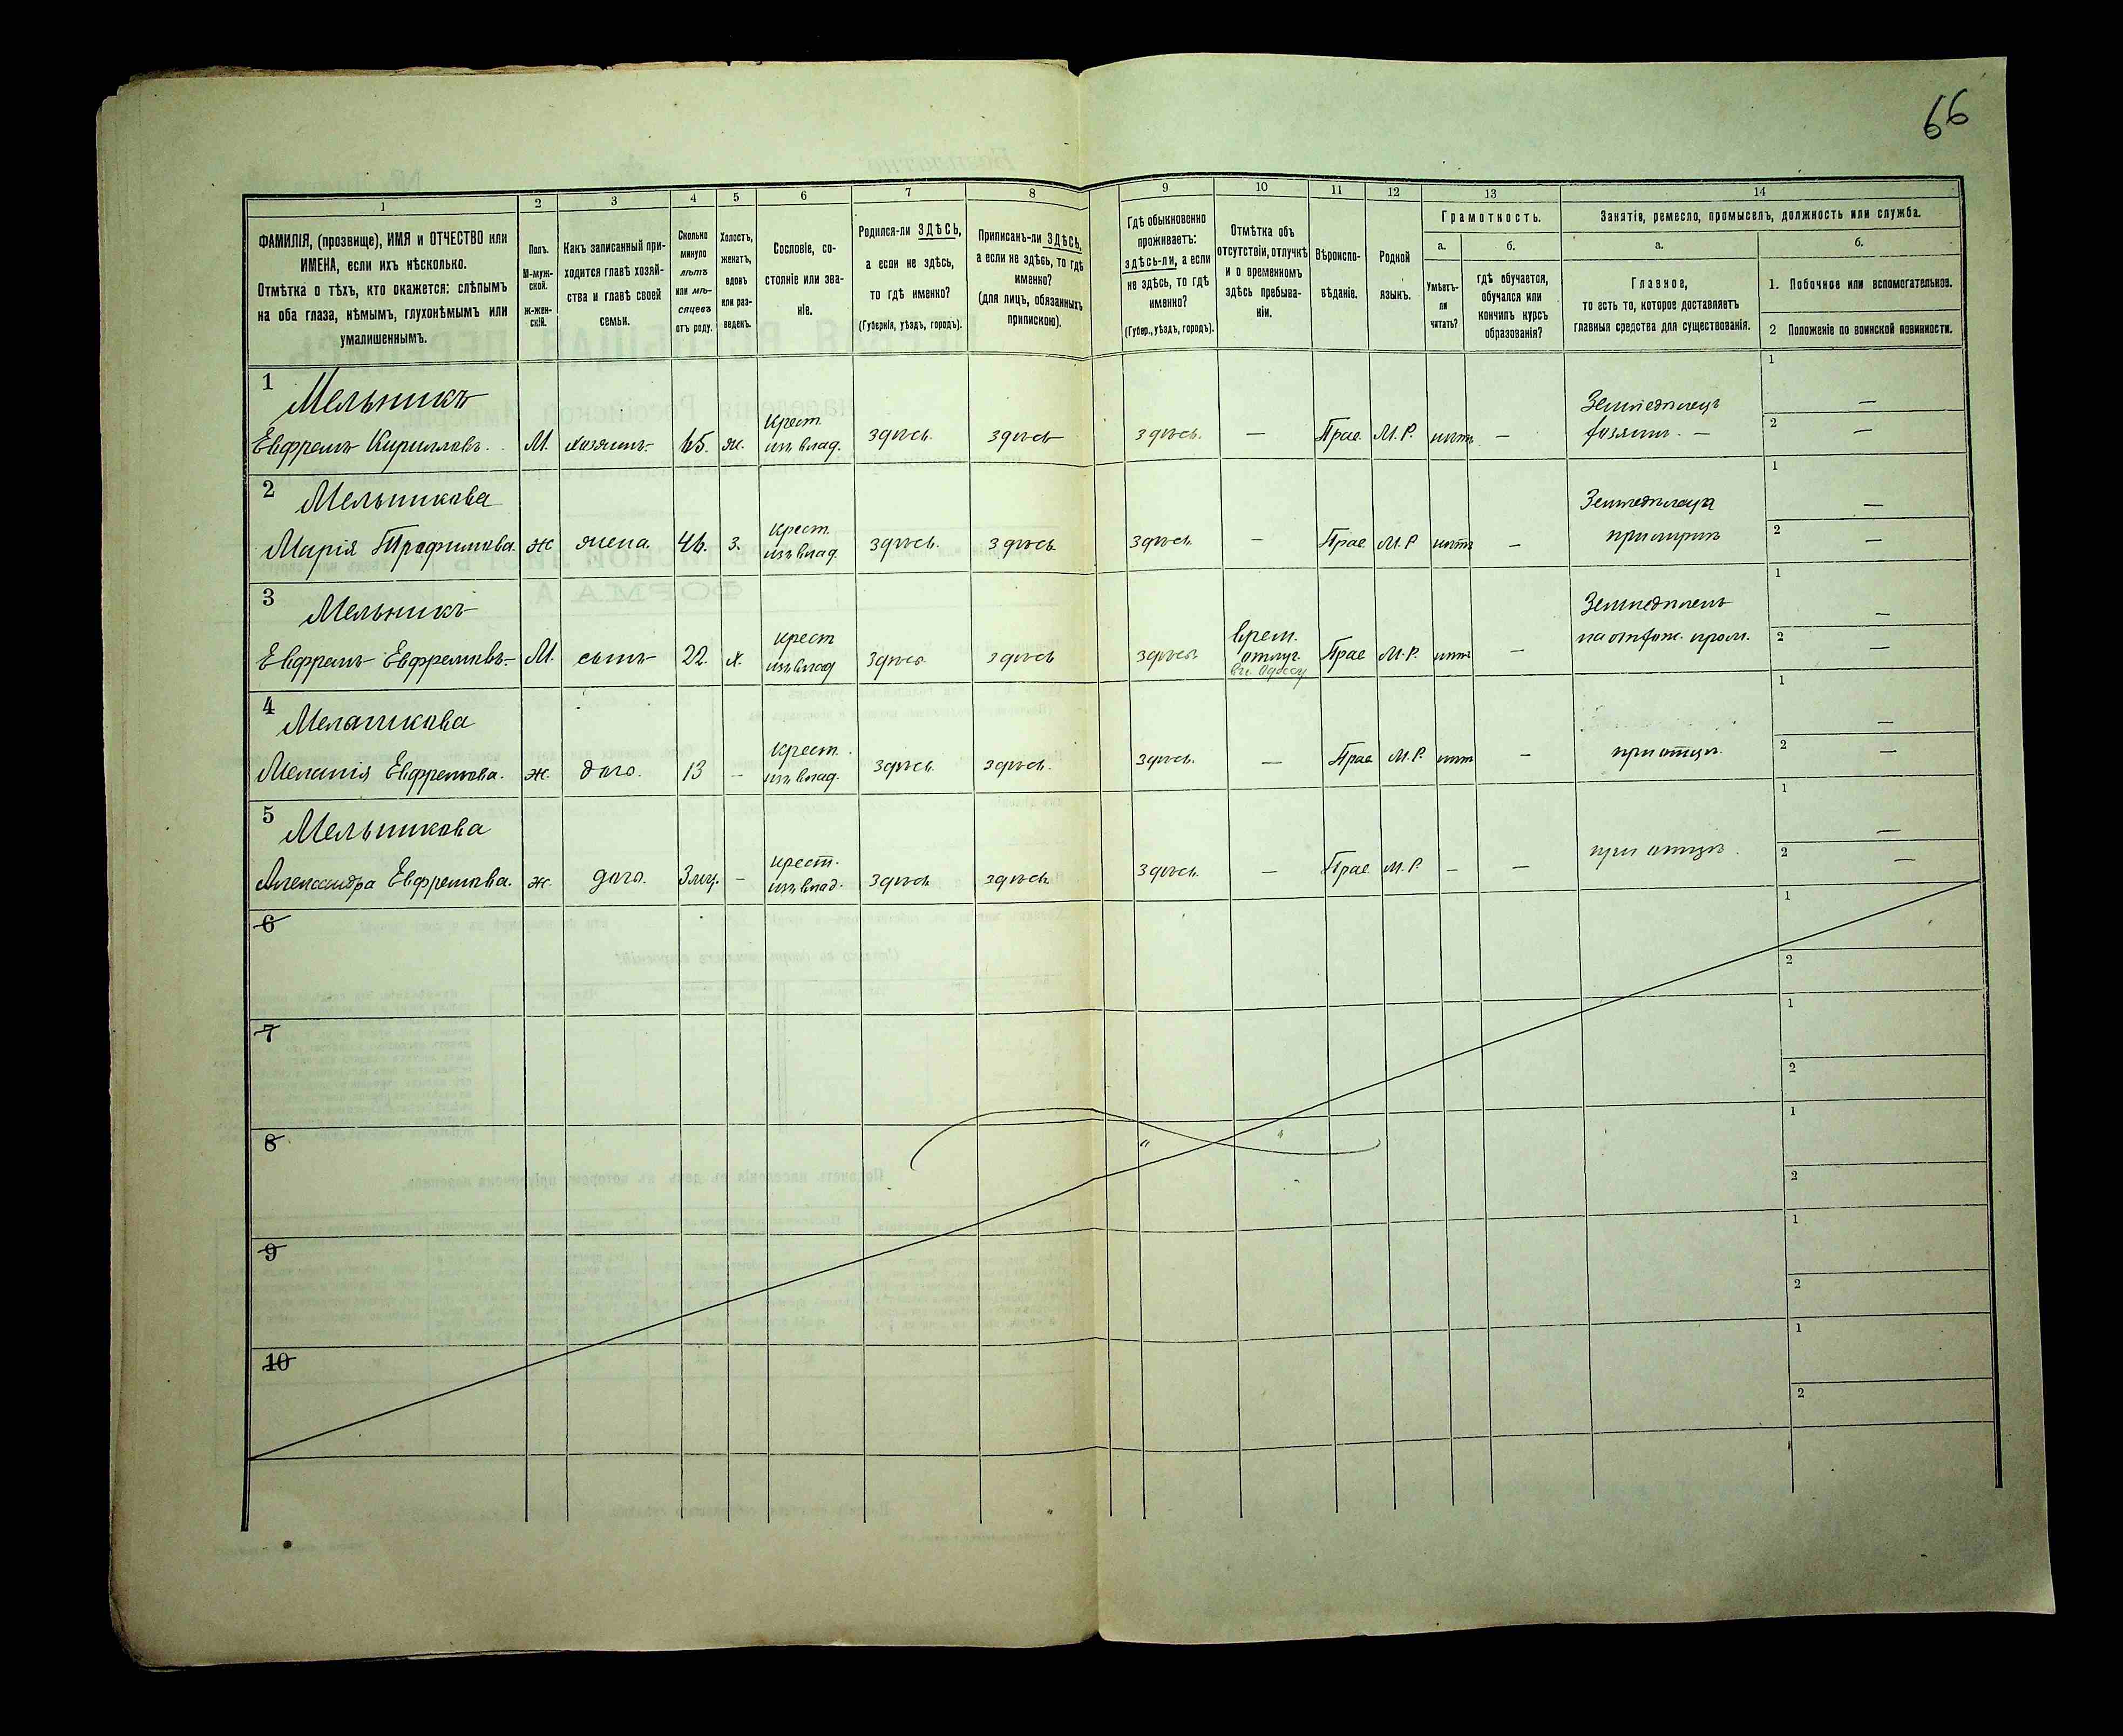 66
1
2
3
4
5
6
7
8
9
10
11
12
13
14
ФАМИЛІЯ, (прозвище), ИМЯ и ОТЧЕСТВО или
ИМЕНА, если ихъ нѣсколько.
Отмѣтка о тѣхъ, кто окажется: слѣпымъ
на оба глаза, нѣмымъ, глухонѣмымъ или
умалишеннымъ.
Полъ.
М-муж-
ской.
ж-жен-
скій.
Какъ записанный при-
ходится главѣ хозяй-
ства и главѣ своей
семьи.
Сколько
минуло
лѣтъ
или мѣ-
сяцевъ
отъ роду.
Холостъ,
женатъ,
вдовъ
или раз-
веденъ.
Сословіе, со-
стояніе или зва-
ніе.
Родился-ли ЗДѢСЬ,
а если не здѣсь,
то гдѣ именно?
(Губернія, уѣздъ, городъ).
Приписанъ-ли ЗДѢСЬ,
а если не здѣсь, то гдѣ
именно?
(для лицъ, обязанныхъ
припискою).
Гдѣ обыкновенно
проживаетъ:
здѣсь-ли, а если
не здѣсь, то гдѣ
именно?
(Губер., уѣздъ, городъ).
Отмѣтка объ
отсутствіи, отлучкѣ
и о временномъ
здѣсь пребыва-
ніи.
Вѣроиспо-
вѣданіе.
Родной
языкъ.
Грамотность.
а.
Умѣетъ-
ли
читать?
б.
гдѣ обучается,
обучался или
кончилъ курсъ
образованія?
Занятіе, ремесло, промыселъ, должность или служба.
а.
Главное,
то есть то, которое доставляетъ
главныя средства для существованія.
б.
1. Побочное или вспомогательное.
2 Положеніе по воинской повинности.
1
Мельникъ
Евфремъ Кирилловъ.
М.
хозяинъ
ж.
Крест.
изъ влад.
здѣсь.
здѣсь
здѣсь.
—
Прав.
М.Р.
нѣтъ
—
Земледѣлецъ
хозяинъ. —
1
—
2
—
2
Мельникова
Марія Трофимова.
ж
жена.
46.
з.
Крест.
изъ влад.
здѣсь.
здѣсь
здѣсь
—
Прав
М.Р
нѣтъ
—
1
—
2
—
3
Мельникъ
Евфремъ Евфремовъ
М.
сынъ
22.
х.
крест
изъ влад
здѣсь
здѣсь
здѣсь
врем.
отлуч.
въ г. Одессу
Прав
М.Р.
нѣтъ
—
Земледѣлецъ
на отхож. пром.
1
—
2
—
4
Мельникова
Меланія Евфремова.
ж.
дочь.
13
—
Крест.
изъ влад.
здѣсь.
здѣсь.
здѣсь.
—
Прав
М.Р.
нѣтъ
—
при отцѣ.
1
—
2
—
5
Мельникова
Александра Евфремова.
ж.
дочь.
—
крест.
изъ влад.
здѣсь
здѣсь
здѣсь.
—
Прав
М.Р.
—
—
при отцѣ.
1
—
2
—
6
1
2
7
1
2
8
1
2
9
1
2
10
1
2